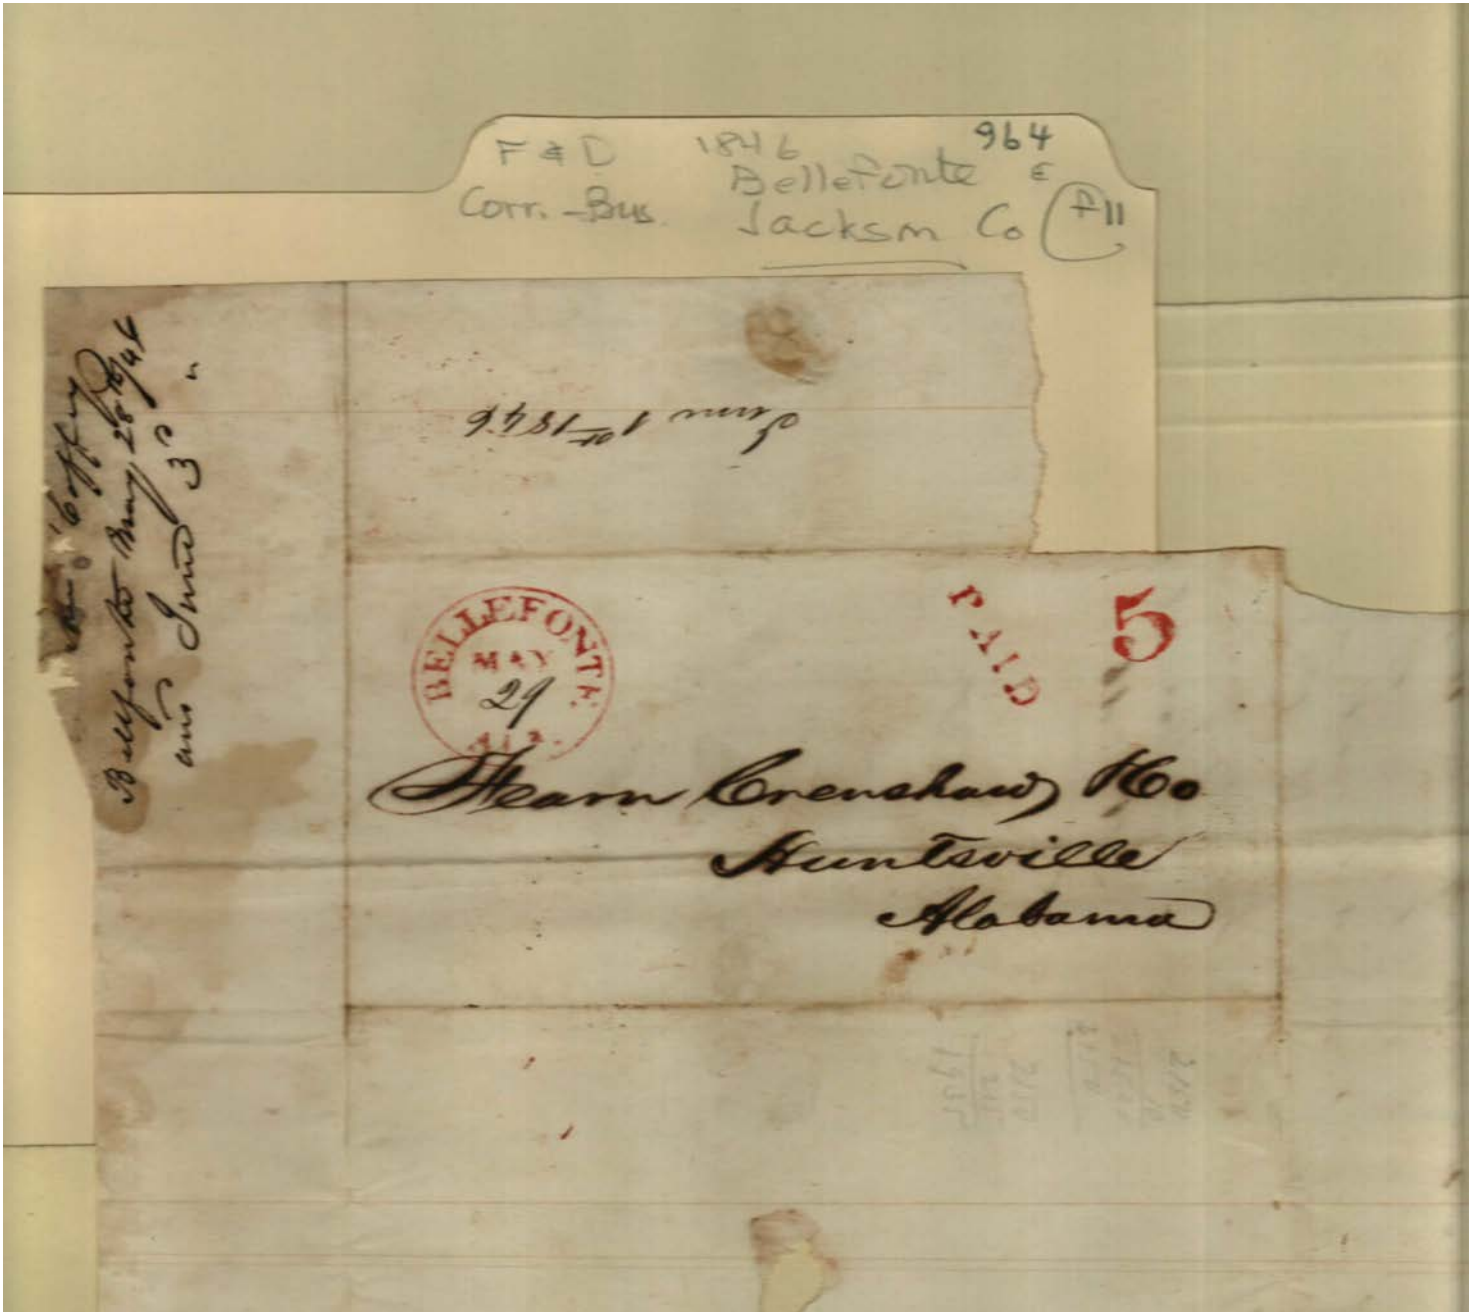 F & D 1846 964
Corr. - Bus. Bellefonte E
Jackson Co F11
June 1st 1846
Coffey
Bellefonte May 28th/46
ans June 3d "
BELLEFONTE
MAY
29
ALA.
PAID
5
Fearn Crenshaw & Co
Huntsville
Alabama